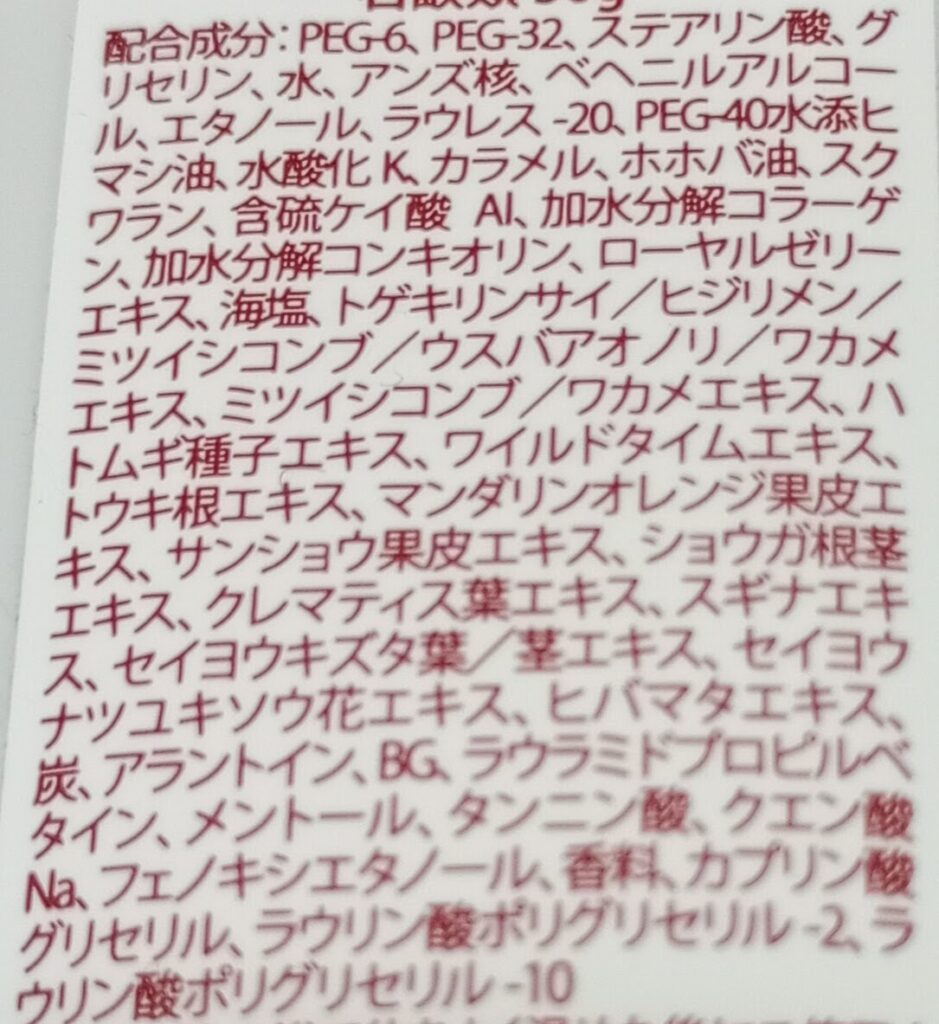 配合成分：PEG-6、PEG-32、ステアリン酸、グ
リセリン、水、アンズ核、ベヘニルアルコー
ル、エタノール、ラウレス -20、PEG-40水添ヒ
マシ油、水酸化 K、カラメル、ホホバ油、スク
ワラン、含硫ケイ酸 Al、加水分解コラーゲ
ン、加水分解コンキオリン、ローヤルゼリー
エキス、海塩、トゲキリンサイ／ヒジリメン／
ミツイシコンブ／ウスバアオノリ／ワカメ
エキス、ミツイシコンブ／ワカメエキス、ハ
トムギ種子エキス、ワイルドタイムエキス、
トウキ根エキス、マンダリンオレンジ果皮エ
キス、サンショウ果皮エキス、ショウガ根茎
エキス、クレマティス葉エキス、スギナエキ
ス、セイヨウキズタ葉／茎エキス、セイヨウ
ナツユキソウ花エキス、ヒバマタエキス、
炭、アラントイン、BG、ラウラミドプロピルベ
タイン、メントール、タンニン酸、クエン酸
Na、フェノキシエタノール、香料、カプリン酸
グリセリル、ラウリン酸ポリグリセリル -2、ラ
ウリン酸ポリグリセリル -10